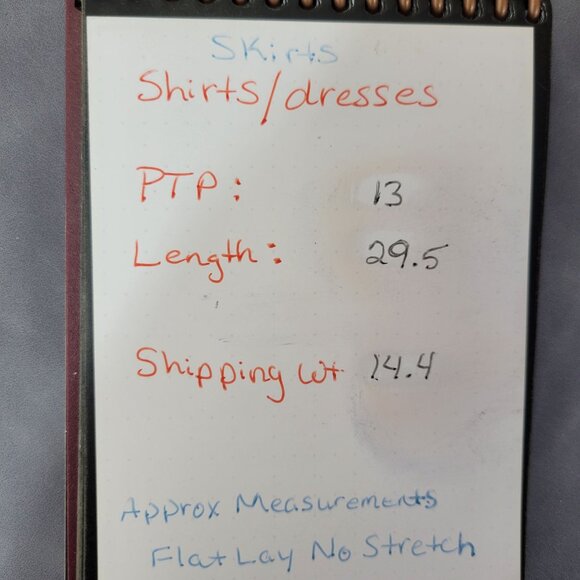 Skirts
Shirts/dresses
PTP: 13
Length: 29.5
Shipping Wt 14.4
Approx Measurements
Flat Lay No Stretch